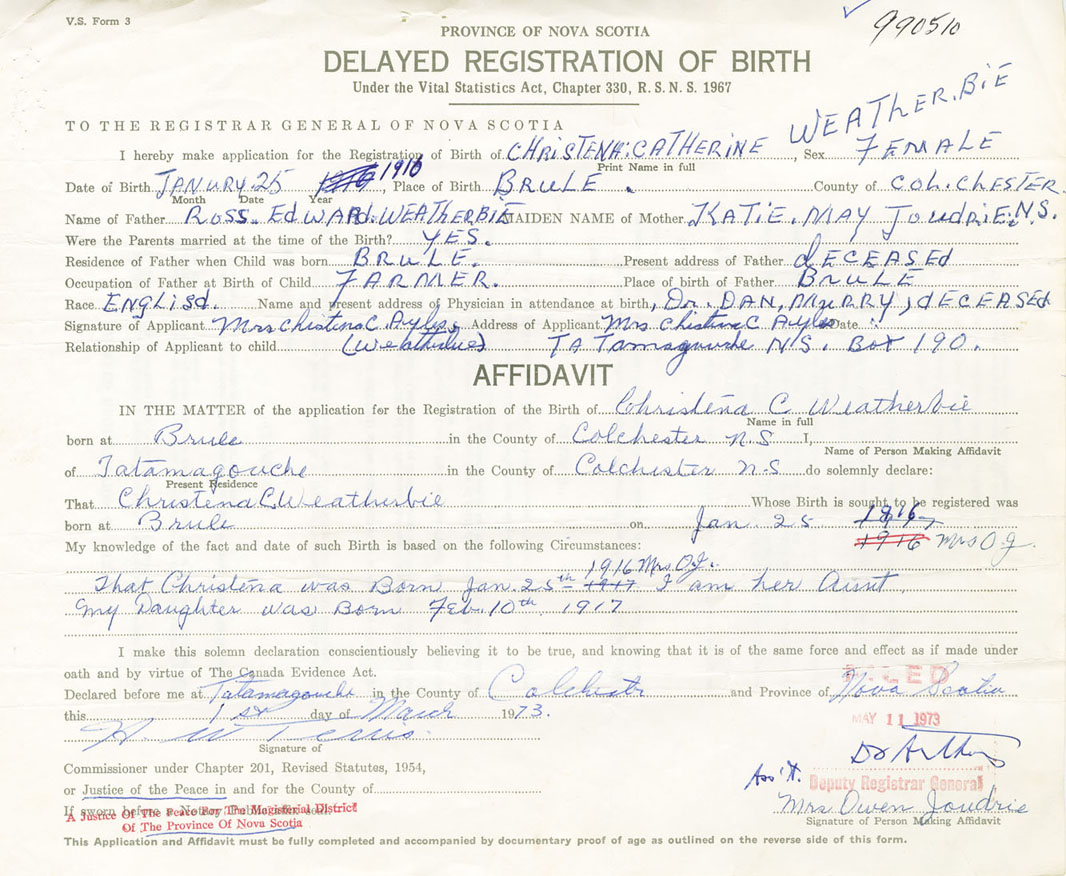 V.S. Form 3
990510
PROVINCE OF NOVA SCOTIA
DELAYED REGISTRATION OF BIRTH
Under the Vital Statistics Act, Chapter 330, R. S. N. S. 1967
TO THE REGISTRAR GENERAL OF NOVA SCOTIA
I hereby make application for the Registration of Birth of CHRISTENA. CATHERINE WEATHER.BIE, Sex FEMALE
Print Name in full
Date of Birth JANURY. 25 1910, Place of Birth BRULE. County of COL.CHESTER.
Month Date Year
Name of Father ROSS. EdWARd. WEATHERBIE MAIDEN NAME of Mother KATIE. MAY JOUDRIE. N.S.
Were the Parents married at the time of the Birth? YES.
Residence of Father when Child was born BRULE. Present address of Father dECEASEd
Occupation of Father at Birth of Child FARMER. Place of birth of Father BRULE
Race ENGLISd. Name and present address of Physician in attendance at birth, Dr. DAN, MURRY, dECEASEd
Signature of Applicant Mrs Christena C. Ayles Address of Applicant Mrs Christena C Ayles Date
Relationship of Applicant to child (Weatherbie) TATamagouche N.S. Box 190.
AFFIDAVIT
IN THE MATTER of the application for the Registration of the Birth of Christena C Weatherbie
Name in full
born at Brule in the County of Colchester N.S I,
Name of Person Making Affidavit
of Tatamagouche in the County of Colchester N.S do solemnly declare:
Present Residence
That Christena C Weatherbie Whose Birth is sought to be registered was
born at Brule on Jan. 25 1916
1916 Mrs O.J.
My knowledge of the fact and date of such Birth is based on the following Circumstances:
1916 Mrs O.J.
That Christena was Born Jan. 25th 1917 I am her Aunt
My Daughter was Born Feb. 10th 1917
I make this solemn declaration conscientiously believing it to be true, and knowing that it is of the same force and effect as if made under
oath and by virtue of The Canada Evidence Act.
Declared before me at Tatamagouche in the County of Colchester and Province of Nova Scotia
FILED
this 1st day of March 1973.
MAY 11 1973
Signature of
Commissioner under Chapter 201, Revised Statutes, 1954,
Ass't. Deputy Registrar General
or Justice of the Peace in and for the County of
Mrs Owen Joudrie
Signature of Person Making Affidavit
A Justice Of The Peace For The Magisterial District
Of The Province Of Nova Scotia
This Application and Affidavit must be fully completed and accompanied by documentary proof of age as outlined on the reverse side of this form.